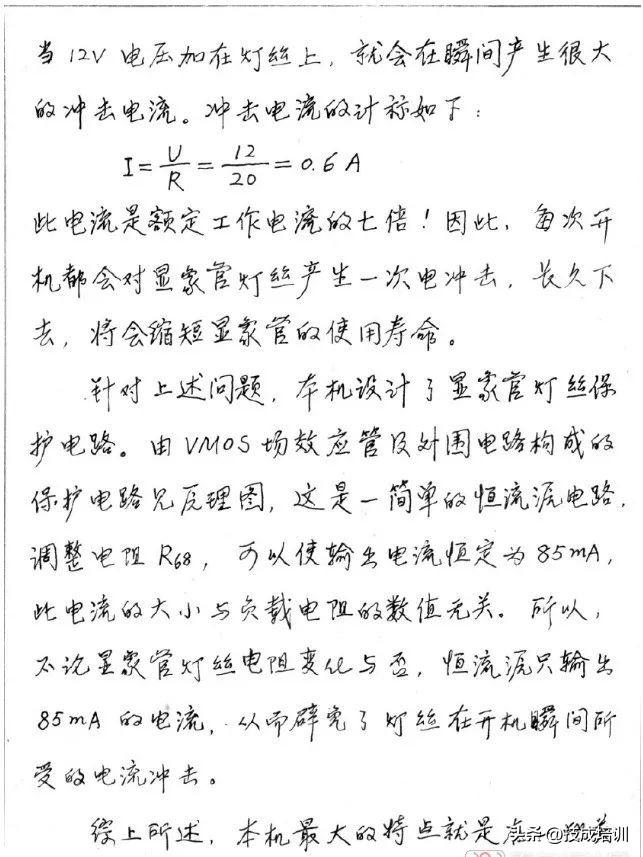 当12V电压加在灯丝上，就会在瞬间产生很大
的冲击电流。冲击电流的计称如下：
I = U/R = 12/20 = 0.6 A
此电流是额定工作电流的七倍！因此，每次开
机都会对显象管灯丝产生一次电冲击，长久下
去，将会缩短显象管的使用寿命。
针对上述问题，本机设计了显象管灯丝保
护电路。由VMOS场效应管及外围电路构成的
保护电路见原理图，这是一简单的恒流源电路，
调整电阻R68，可以使输出电流恒定为85mA，
此电流的大小与负载电阻的数值无关。所以，
不论显象管灯丝电阻变化与否，恒流源只输出
85mA的电流，从而避免了灯丝在开机瞬间所
受的电流冲击。
综上所述，本机最大的特点就是
头条@技成培训